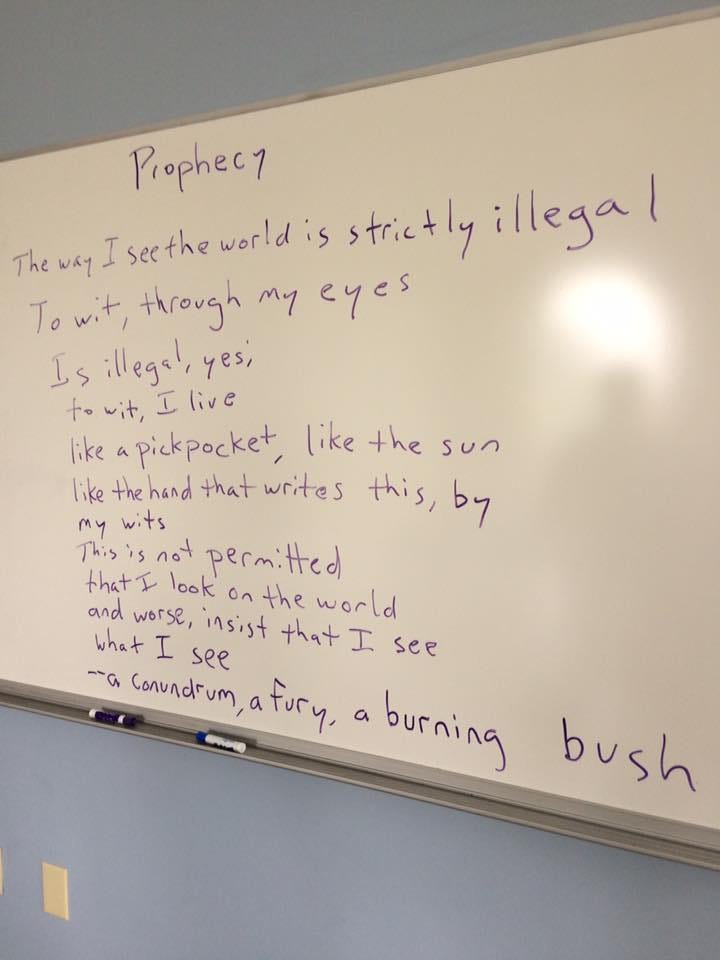 Prophecy
The way I see the world is strictly illegal
To wit, through my eyes
Is illegal, yes;
to wit, I live
like a pickpocket, like the sun
like the hand that writes this, by
my wits
This is not permitted
that I look on the world
and worse, insist that I see
what I see
--a conundrum, a fury, a burning bush